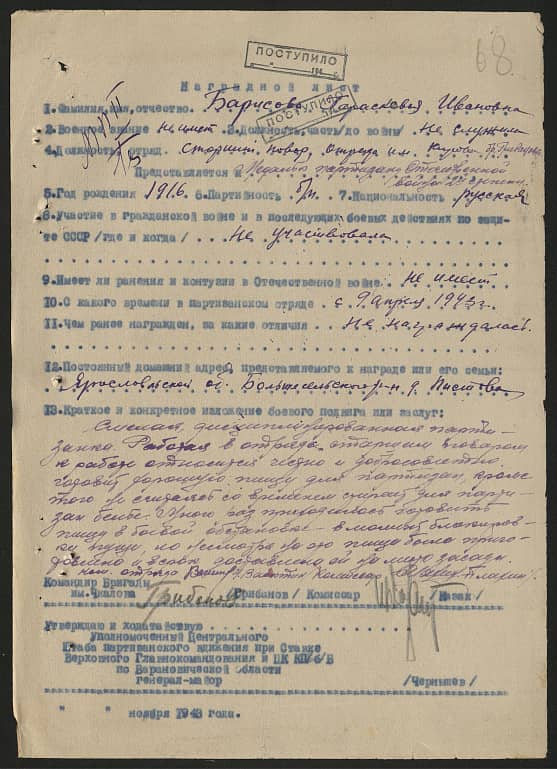 68
ПОСТУПИЛО
Наградной лист
ПОСТУПИЛО
1.Фамилия,имя,отчество. Барисова Парасковья Ивановна
2.Военное звание не имеет 3.Должность,часть/до войны/ Не служила
4.Должность, отряд. старший повар, отряда им.
Представляется к Медали партизану Отечественной
войны
5.Год рождения 1916. 6.Партийность б/п. 7.Национальность русская
8.Участие в Гражданской войне и в последующих боевых действиях по защи-
те СССР /где и когда/ Не участвовала
9.Имеет ли ранения и контузии в Отечественной войне. Не имеет
10.С какого времени в партизанском отряде. с 9 апреля 1943 г.
11.Чем ранее награжден, за какие отличия. Не награждалась
12.Постоянный домашний адрес, представляемого к награде или его семьи:
Ярославльской об. Большесельского р-н д.
13.Краткое и конкретное изложение боевого подвига или заслуг:
Смелая, дисциплинированная парти-
занка. Работая в отряде старшим поваром
к работе относится честно и добросовестно.
готовит хорошую пищу для партизан, кроме
того не считаясь со временем стирает для парти-
зан белье. Много раз приходилось готовить
пищу в боевой обстановке - в момент блокиров-
ки пущи, но несмотря на это пища была приго-
товлена и всегда доставлена ей на место засады.
ком. отряда Комиссар
Командир Бригады
им.Чкалова Грибанов /Грибанов/ Комиссар /Казак/
Утверждаю и ходатайствую
Уполномоченный Центрального
Штаба партизанского движения при Ставке
Верховного Главнокомандования и ЦК КП/б/Б
по Барановичской области
генерал-майор /Чернышев/
" " ноября 1943 года.